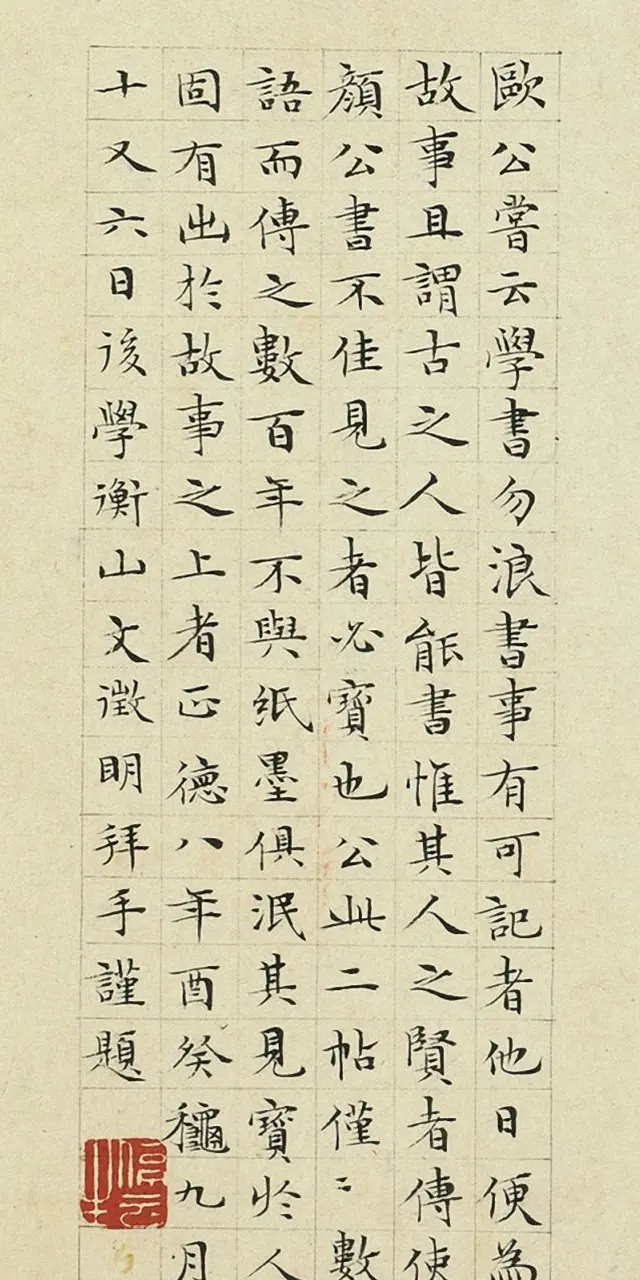 歐公嘗云學書勿浪書事有可記者他日便為
故事且謂古之人皆能書惟其人之賢者傳使
顏公書不佳見之者必寶也公此二帖僅〻數
語而傳之數百年不與紙墨俱泯其見寶於人
固有出於故事之上者正德八年酉癸龝九月
十又六日後學衡山文徵明拜手謹題